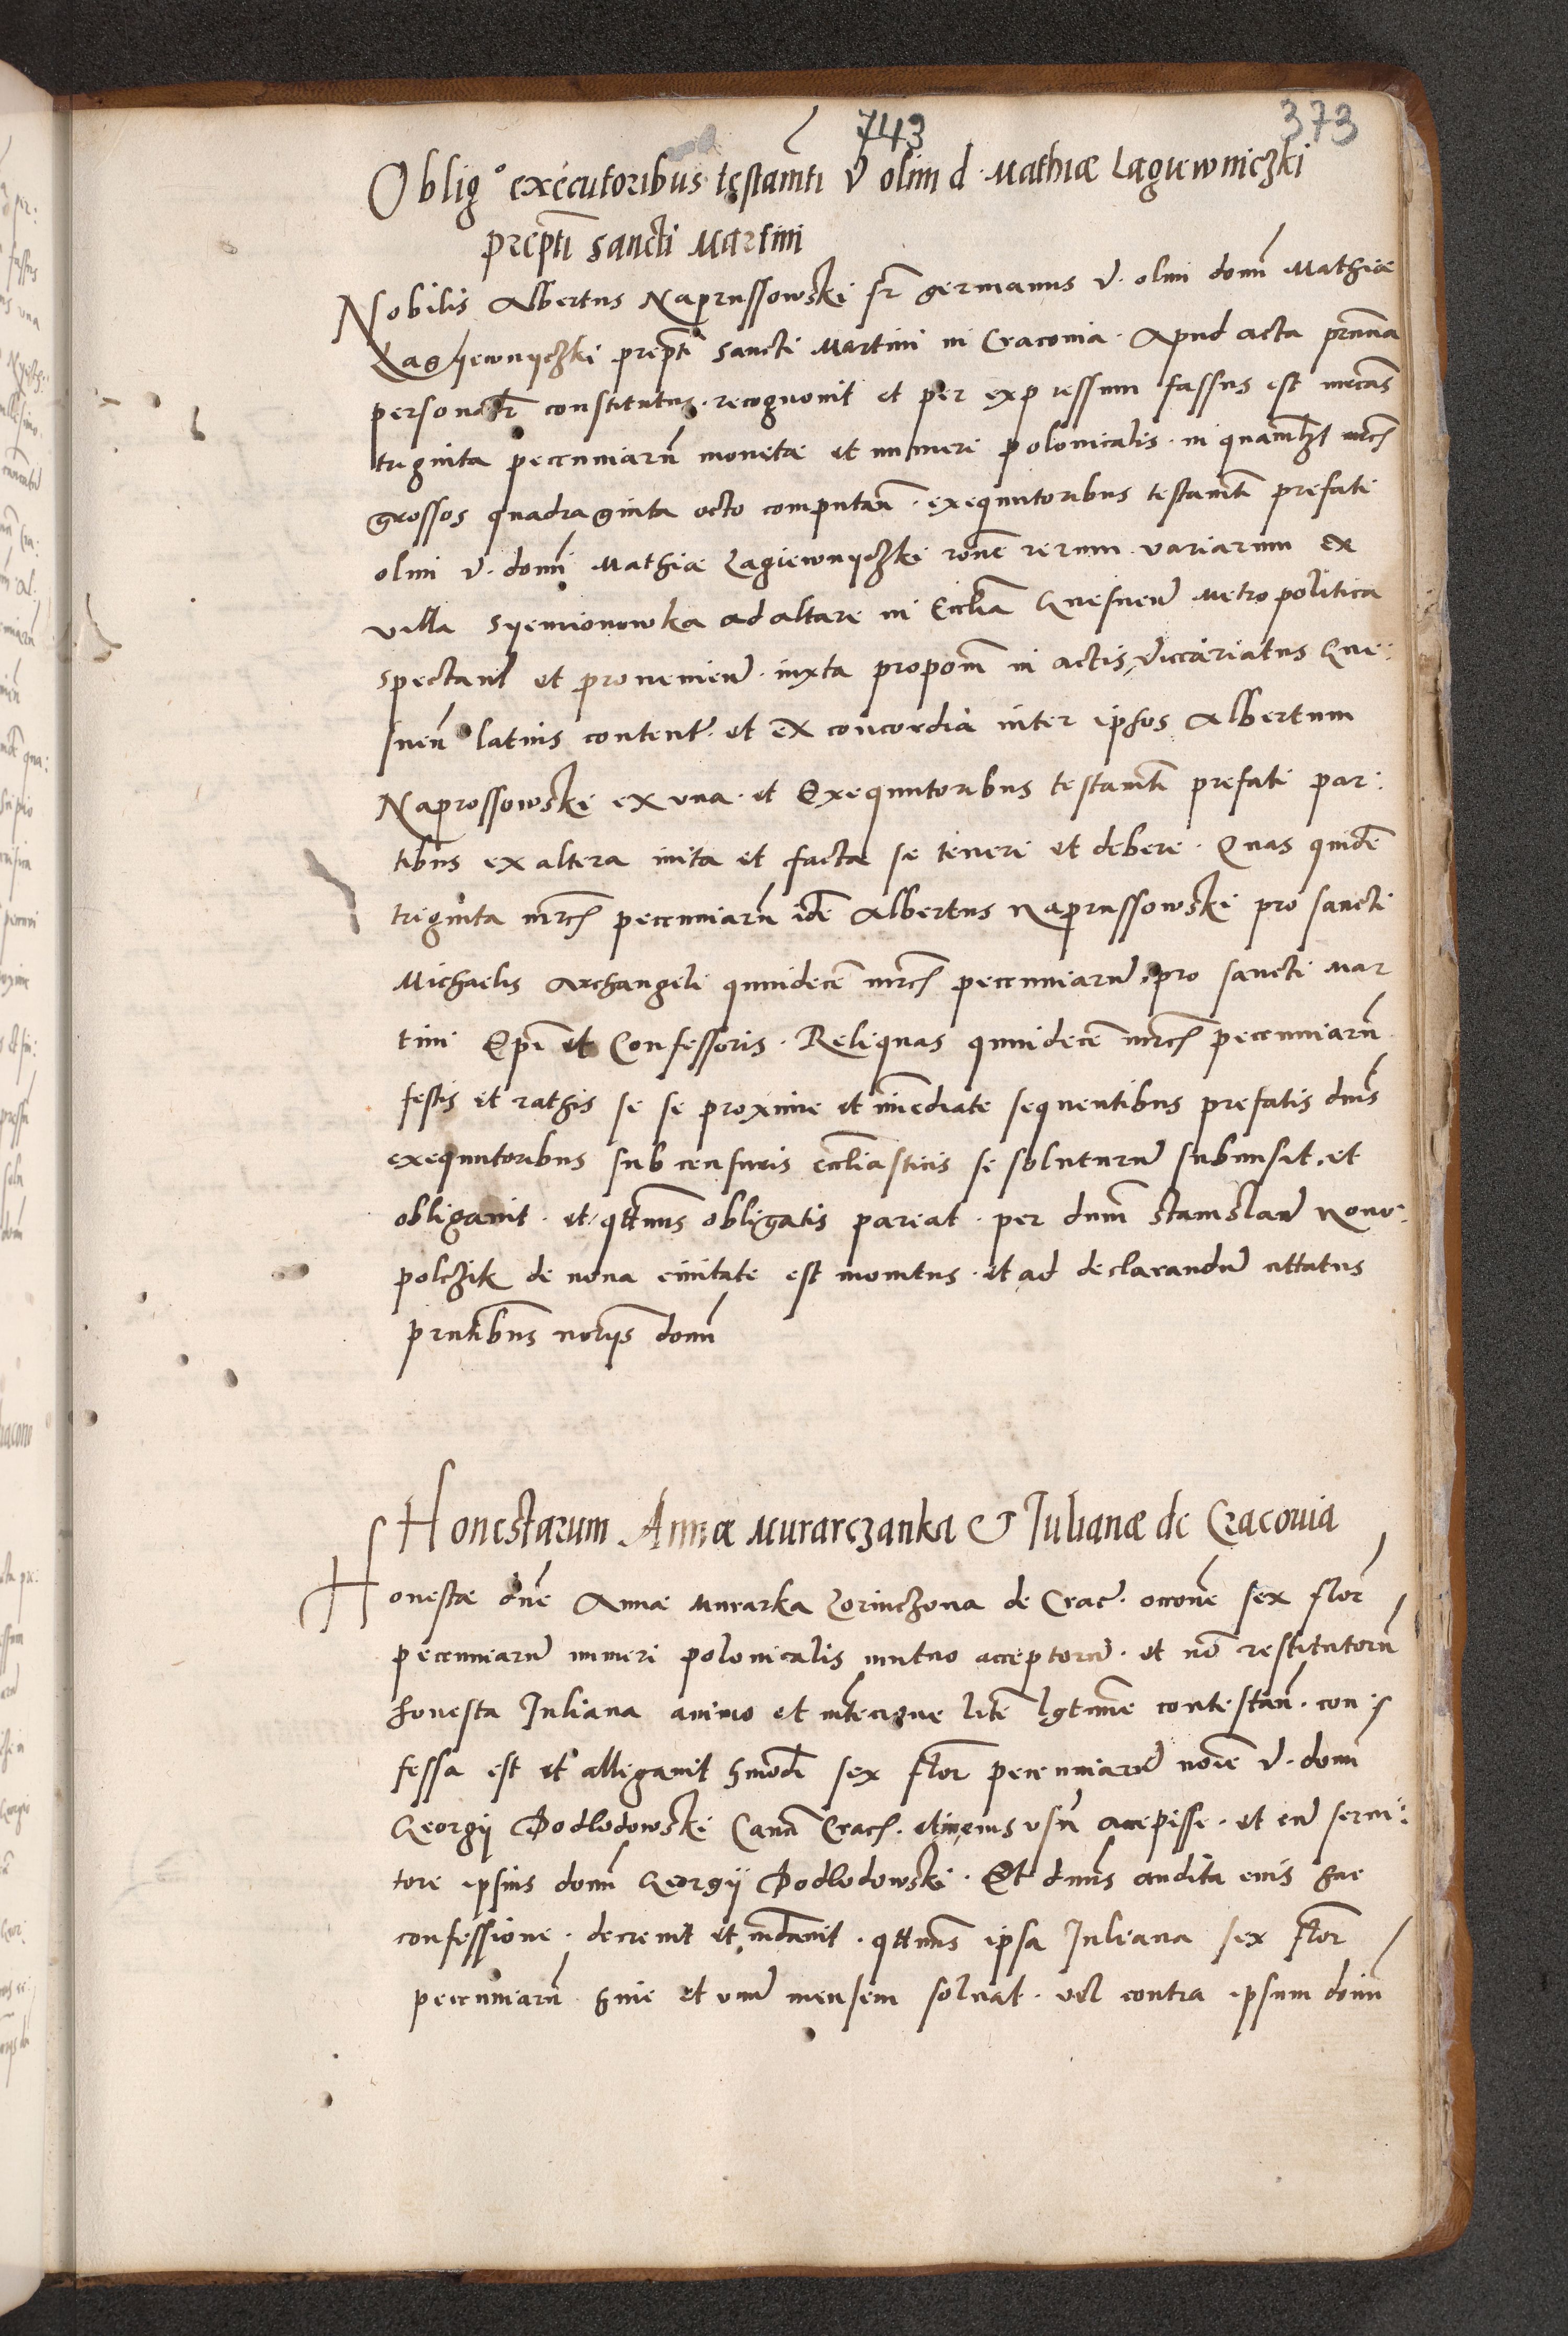 743
373
Oblig° executoribus testamti V olim d. Mathiæ Lagiewniczki
prepti Sancti Martini
Nobilis Albertus Naprussowski fr germanus V. olim domi Mathiæ
Lagyewnyczki prepti Sancti Martini in Cracovia. Apud acta prnna
personalr constitutus. recognovit et per expressum fassus est mrcas
triginta pecuniaru monetæ et numeri polonicalis. in quamlzt mrcs
grossos quadraginta octo computan. exequutoribus testamti prefati
olim V. domi Mathiæ Lagiewnyczki rone rerum variarum ex
villa Syemionowka ad altare in Ecclia Gnesnen Metropolitica
spectan et provenien. iuxta propom in actis viccariatus Gne:
snen latius content. et ex concordia inter ipsos Albertum
Naprossowski ex una. et Exequutoribus testamti prefati par:
tibus ex altera inita et facta se teneri et debere. Quas quide
triginta mrcs pecuniaru ide Albertus Naprussowski pro sancti
Michaelis Archangeli quindece mrcs pecuniaru. pro sancti Mar
tini Epi et Confessoris. Reliquas quindece mrcs pecuniaru
festis et rathis se se proxime et imediate sequentibus prefatis dnis
exequutoribus sub censuris eccliasticis se soluturu submisit. et
obligavit. et qttnus obligatis pareat. per dnm Stanislau Novo:
polczik de nova civitate est monitus. et ad declarandu cittatus
prntibus notrys domi
Honestarum Annæ Murarczanka & Iulianæ de Cracovia
Honestæ dne Annæ Murarka Lorinczowa de Crac. occone sex flor
pecuniaru numeri polonicalis mutuo acceptoru. et no restitutoru
honesta Iuliana animo et intencione lite lgtime contestan. con:
fessa est et allegavit hmodi sex flor pecuniaru noie V. domi
Georgii Podlodowski Cann Cracs. et in eius usu accepisse. et cu servi:
tore ipsius domi Georgii Podlodowski. Et dnus audita eius hac
confessione. decrevit et mdavit. qttnus ipsa Iuliana sex flor
pecuniaru hinc et unu mensem solvat. vel contra ipsum domi